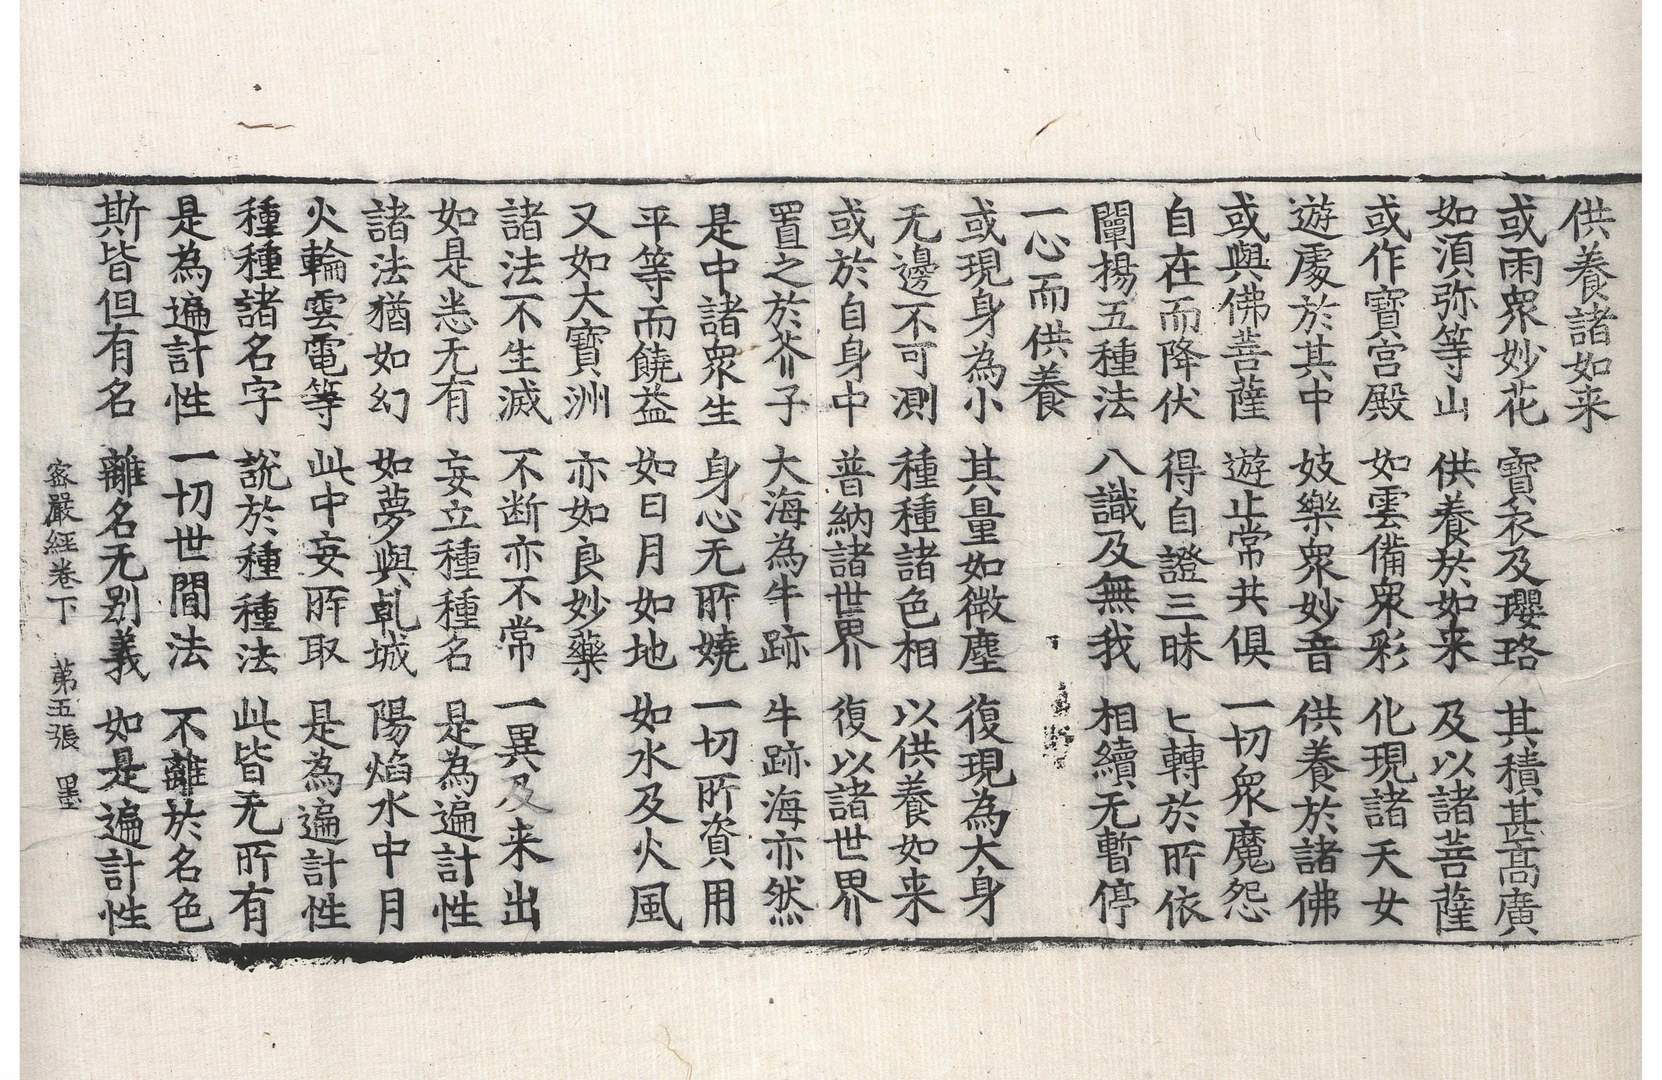 供養諸如来
或雨衆妙花 寶衣及瓔珞 其積甚高廣
如須弥等山 供養於如来 及以諸菩薩
或作寶宮殿 如雲備衆彩 化現諸天女
遊處於其中 妓樂衆妙音 供養於諸佛
或與佛菩薩 遊止常共俱 一切衆魔怨
自在而降伏 得自證三昧 𠤎轉於所依
闡揚五種法 八識及無我 相續无暫停
一心而供養
或現身為小 其量如微塵 復現為大身
无邊不可測 種種諸色相 以供養如来
或於自身中 普納諸世界 復以諸世界
置之於芥子 大海為牛跡 牛跡海亦然
是中諸衆生 身心无所嬈 一切所資用
平等而饒益 如日月如地 如水及火風
又如大寶洲 亦如良妙藥
諸法不生滅 不断亦不常 一異及来出
如是悉无有 妄立種種名 是為遍計性
諸法猶如幻 如夢與乹城 陽焰水中月
火輪雲電等 此中妄所取 是為遍計性
種種諸名字 說於種種法 此皆无所有
是為遍計性 一切世間法 不離於名色
斯皆但有名 離名无别義 如是遍計性
密嚴經卷下 第五張 墨